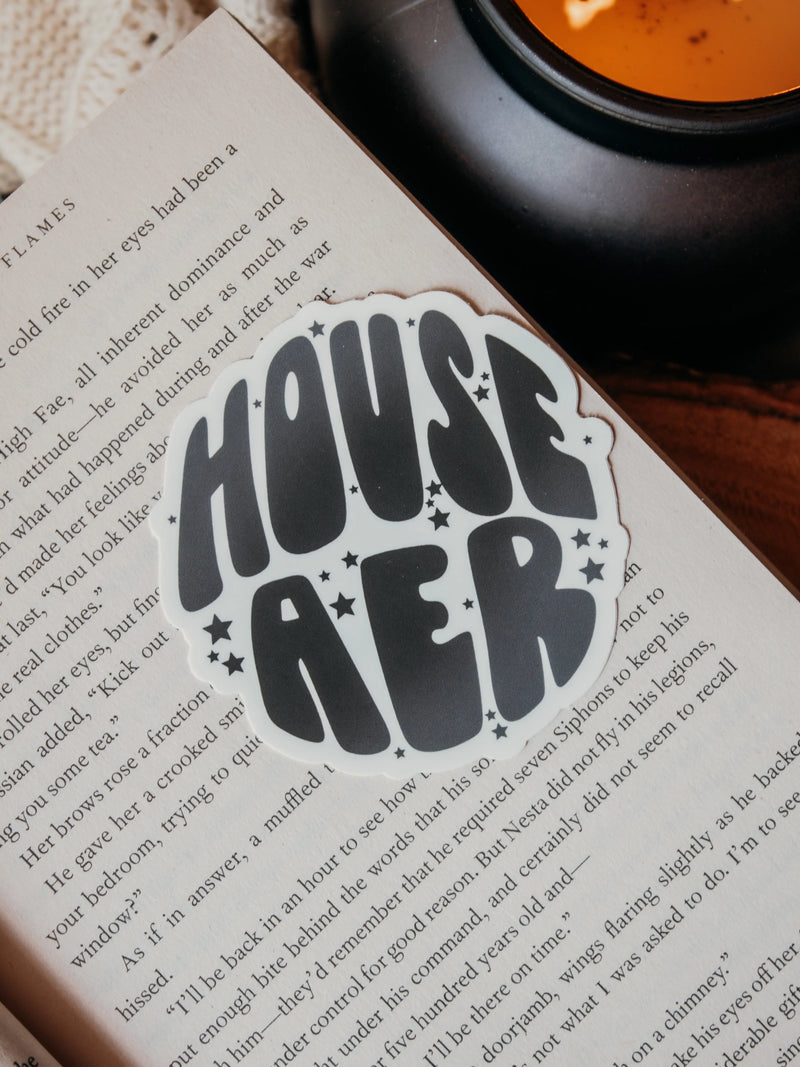 FLAMES
cold fire in her eyes had been a
High Fae, all inherent dominance and
attitude—he avoided her as much as
what had happened during and after the war
'd made her feelings
at last, "You look like
real clothes."
rolled her eyes, but
added, "Kick out
you some tea."
Her brows rose a fraction
He gave her a crooked
your bedroom, trying to
window?"
As if in answer, a muffled
hissed.
HOUSE
AER
an
not to
"I'll be back in an hour to see how
put enough bite behind the words that his
him—they'd remember that he required seven Siphons to keep his
under control for good reason. But Nesta did not fly in his legions,
under his command, and certainly did not seem to recall
five hundred years old and—
"I'll be there on time."
doorjamb, wings flaring slightly as he backed
not what I was asked to do. I'm to see
on a chimney."
his eyes off her
the